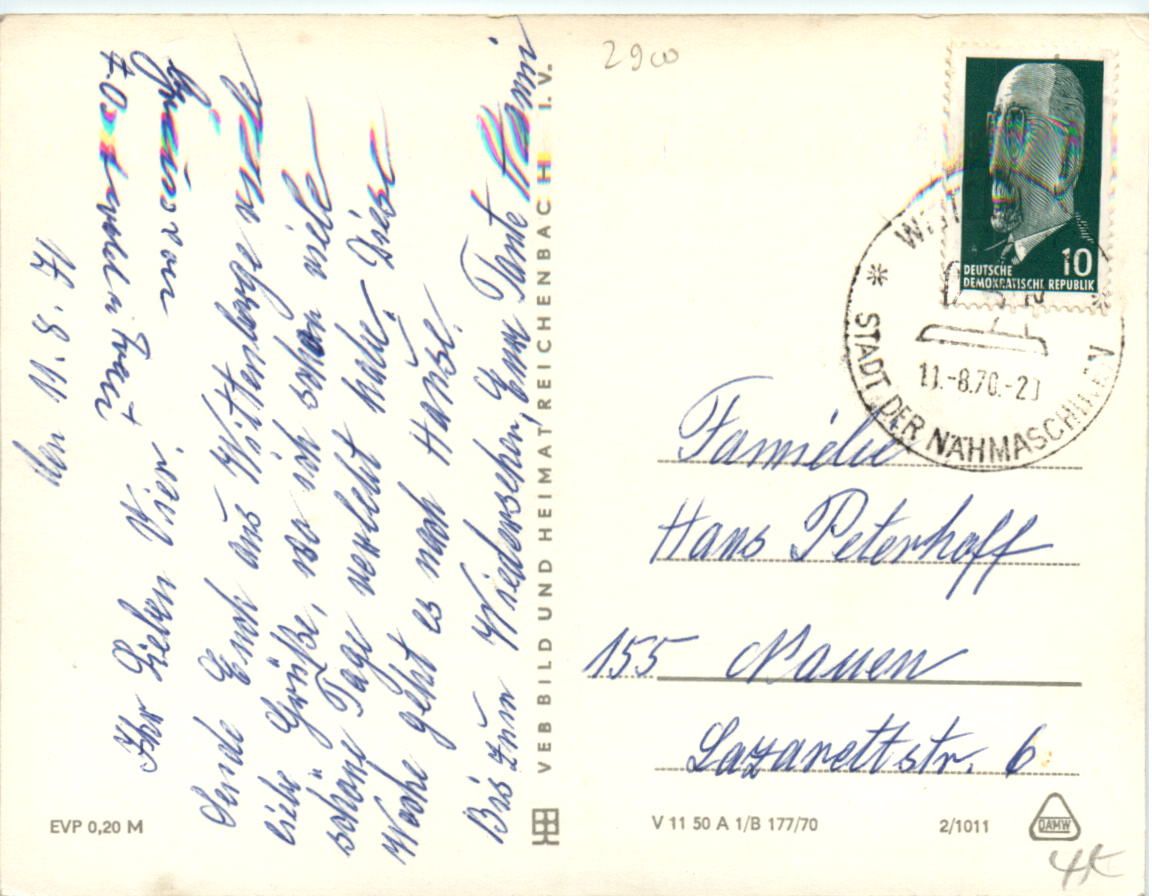 den 11. 8. 71
Ihr Lieben Vier.
Sende Euch aus Wittenberge viele
liebe Grüße, wo ich schon viele
schöne Tage verlebt habe. Diese
Woche geht es nach Hause.
Bis zum Wiedersehen, Eure Tante
VEB BILD UND HEIMAT REICHENBACH I. V.
EVP 0,20 M
2900
DEUTSCHE
DEMOKRATISCHE REPUBLIK
10
STADT DER NÄHMASCHINEN
11.-8.70.-20
Familie
Hans Peterhoff
155 Nauen
Lazarettstr. 6
V 11 50 A 1/B 177/70
2/1011
DAMW